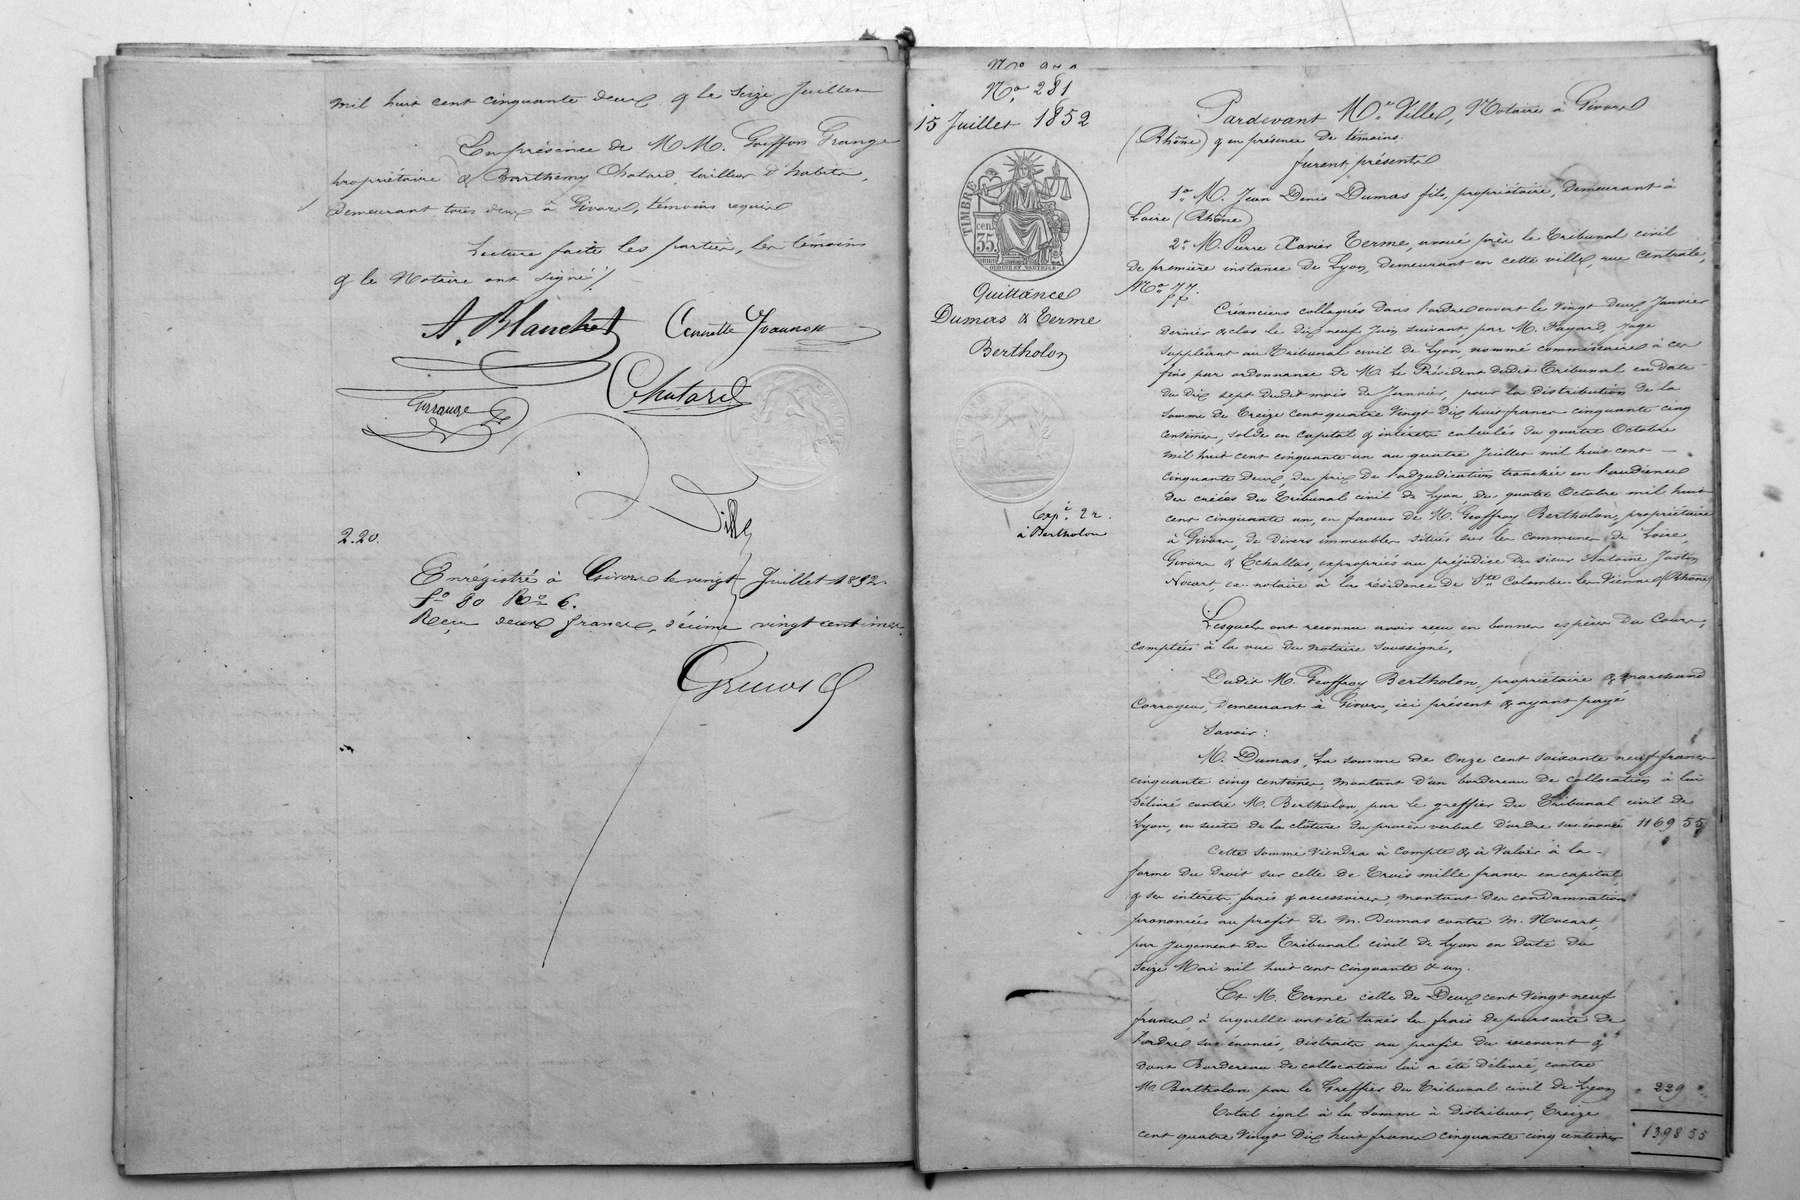 mil huit cent cinquante deux & le seize Juillet
En présence de M.M. Goiffon Grange
propriétaire & Barthémy Chatard, tailleur d'habits,
demeurant tous deux à Givors, témoins requis
Lecture faite les parties, les témoins
& le Notaire ont signé /.
A. Blanchet
Chatard
Ville
2.20.
Enrégistré à Givors le vingt Juillet 1852.
fo 80 Ro 6.
Reçu deux francs, décime vingt centimes.
No 281
15 Juillet 1852
TIMBRE
35 cen.
Quittance
Dumas & Terme
Bertholon
Expé. 2 r.
à Bertholon
Pardevant Me Ville, Notaire à Givors
(Rhône) & en présence de témoins.
furent présents
1o M. Jean Denis Dumas fils, propriétaire, demeurant à
Loire (Rhône)
2o M. Pierre Xavier Terme, avoué près le Tribunal civil
de première instance de Lyon, demeurant en cette ville, rue Centrale,
No 77.
Créanciers colloqués dans l'ordre ouvert le Vingt deux Janvier
dernier & clos le dix neuf Juin suivant par M. Fayard, Juge
suppléant au Tribunal civil de Lyon, nommé commissaire à ces
fins par ordonnance de M. Le Président dudit Tribunal en date
du dix sept dudit mois de Janvier, pour la distribution de la
somme de Treize cent quatre Vingt Dix huit francs cinquante cinq
centimes, solde en capital & intérêts calculés du quatre Octobre
mil huit cent cinquante un au quatre Juillet mil huit cent —
cinquante deux, du prix de l'adjudication tranchée en l'audience
des criées du Tribunal civil de Lyon, du quatre Octobre mil huit
cent cinquante un, en faveur de M. Geoffroy Bertholon, propriétaire
à Givors, de divers immeubles situés sur les communes de Loire,
Givors & Echallas, expropriés au préjudice du sieur Antoine Justin
Nocart, ex notaire à la résidence de Ste Colombe les Vienne (Rhône)
Lesquels ont reconnu avoir reçu en bonnes espèces du Cours,
comptées à la vue du notaire soussigné,
Dudit M. Geoffroy Bertholon, propriétaire & marchand
Corroyeur, demeurant à Givors, ici présent & ayant payé
Savoir :
M. Dumas, La somme de Onze cent soixante neuf francs
cinquante cinq centimes, montant d'un bordereau de collocation à lui
délivré contre M. Bertholon, par le greffier du Tribunal civil de
Lyon, en suite de la clôture du procès verbal d'ordre sus énoncé 1169 55
Cette somme Viendra à Compte & à Valoir à la —
forme du Droit sur celle de Trois mille francs en capital
& ses intérêts, frais & accessoires, montant des condamnations
prononcées au profit de M. Dumas contre M. Nocart,
par Jugement du Tribunal civil de Lyon en date du
seize Mai mil huit cent cinquante & un.
Et M. Terme celle de Deux cent Vingt neuf
francs, à laquelle ont été taxés les frais de poursuite de
l'ordre sus énoncés, distraits au profit du recevant &
dont Bordereau de collocation lui a été délivré, contre
M. Bertholon par le Greffier du Tribunal civil de Lyon 229 "
Total égal à la somme à Distribuer, Treize
cent quatre Vingt Dix huit francs cinquante cinq centimes 1398 55